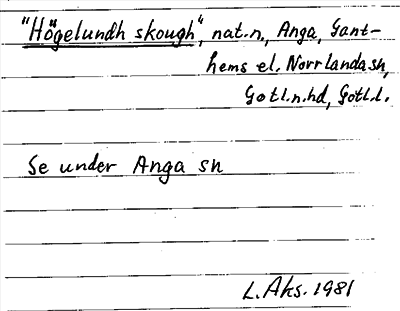 "Högelundh skough", nat.n., Anga, Gant-
hems el. Norrlanda sn,
Gotl.n.hd, Gotl.l.
Se under Anga sn
L. Aks. 1981